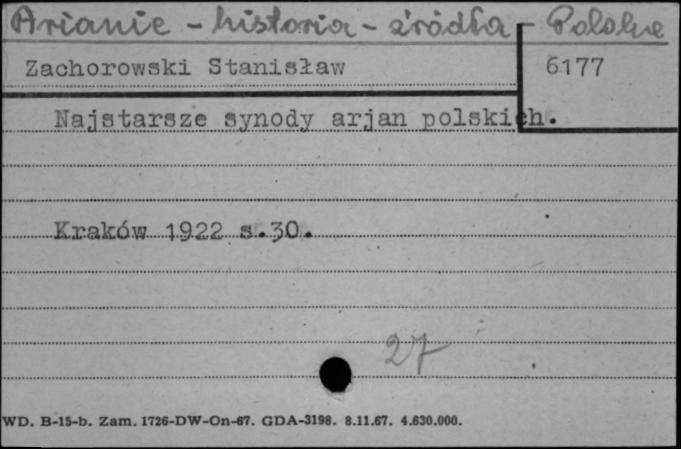 Arianie - historia - źródła - Polskie
Zachorowski Stanisław
6177
Najstarsze synody arjan polskich.
Kraków 1922 s.30.
27
WD. B-15-b. Zam. 1726-DW-On-67. GDA-3198. 8.11.67. 4.630.000.